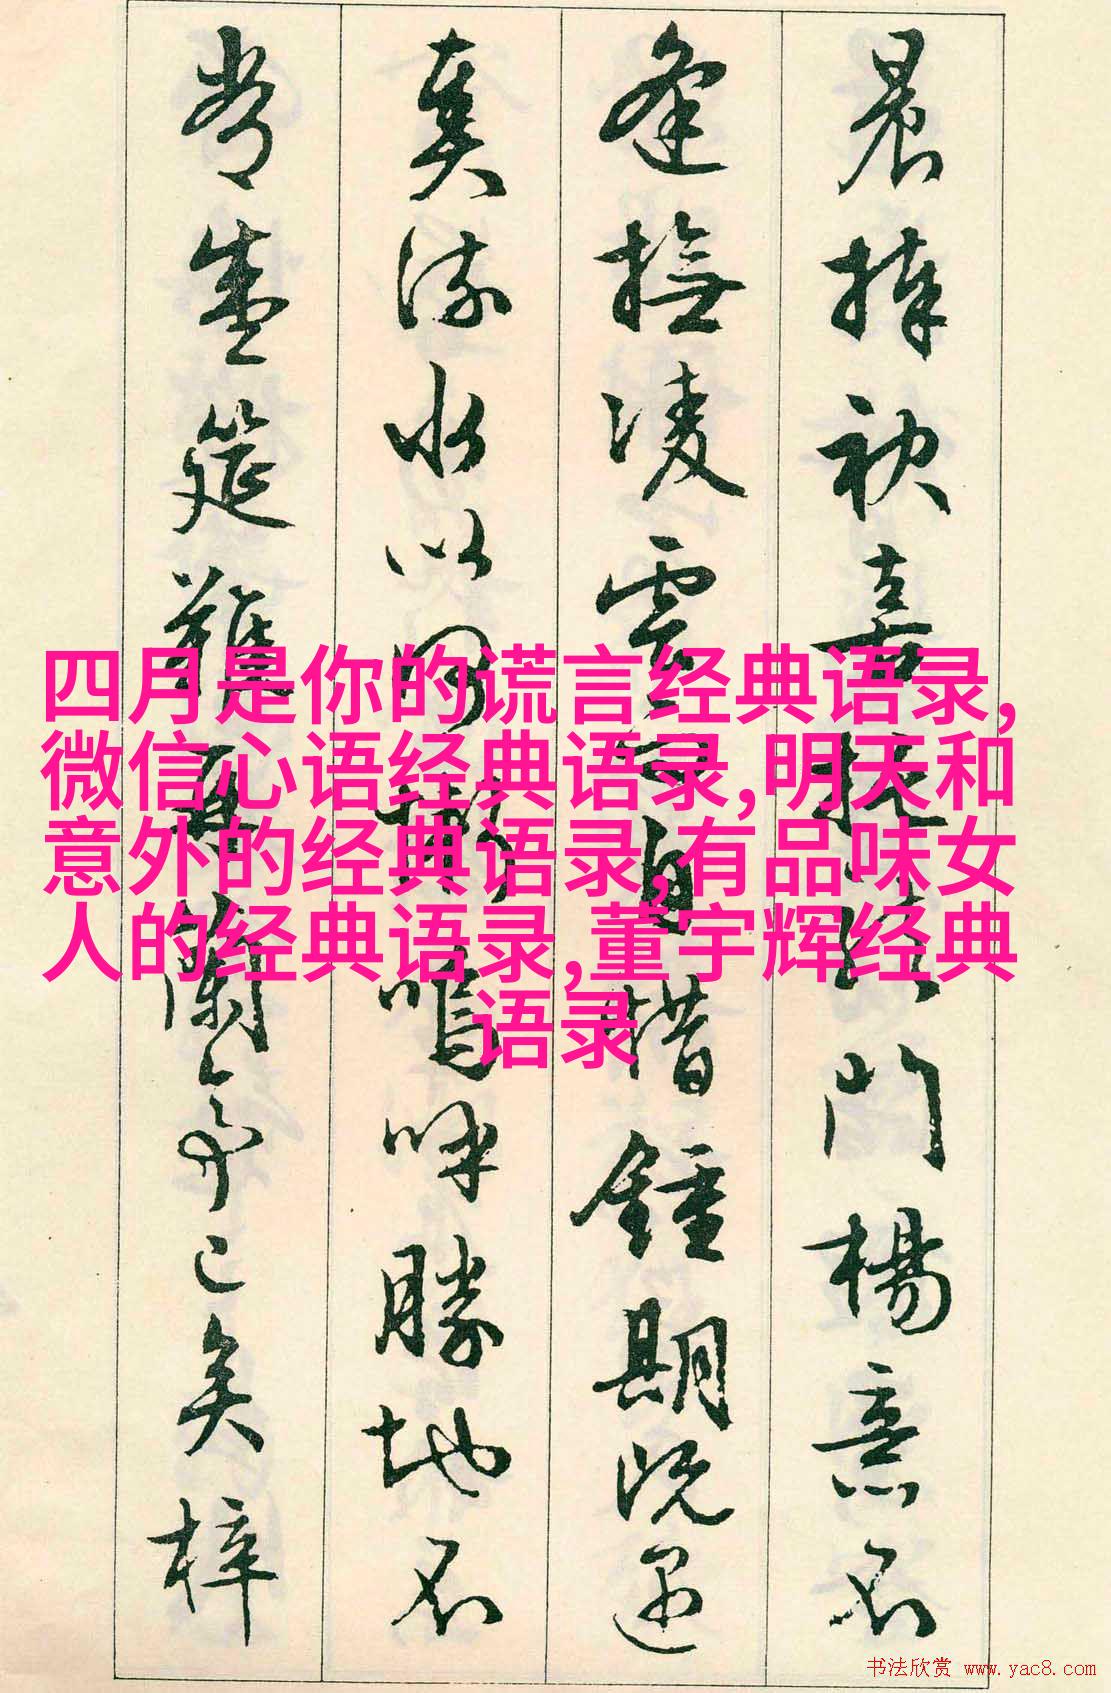 晨捧袂喜托龍門楊意不
逢撫凌雲而自惜鍾期既遇
奏流水以何慚嗚呼勝地不
常盛筵難再蘭亭已矣梓
四月是你的谎言经典语录,
微信心语经典语录,明天和
意外的经典语录,有品味女
人的经典语录,董宇辉经典
语录
书法欣赏 www.yac8.com